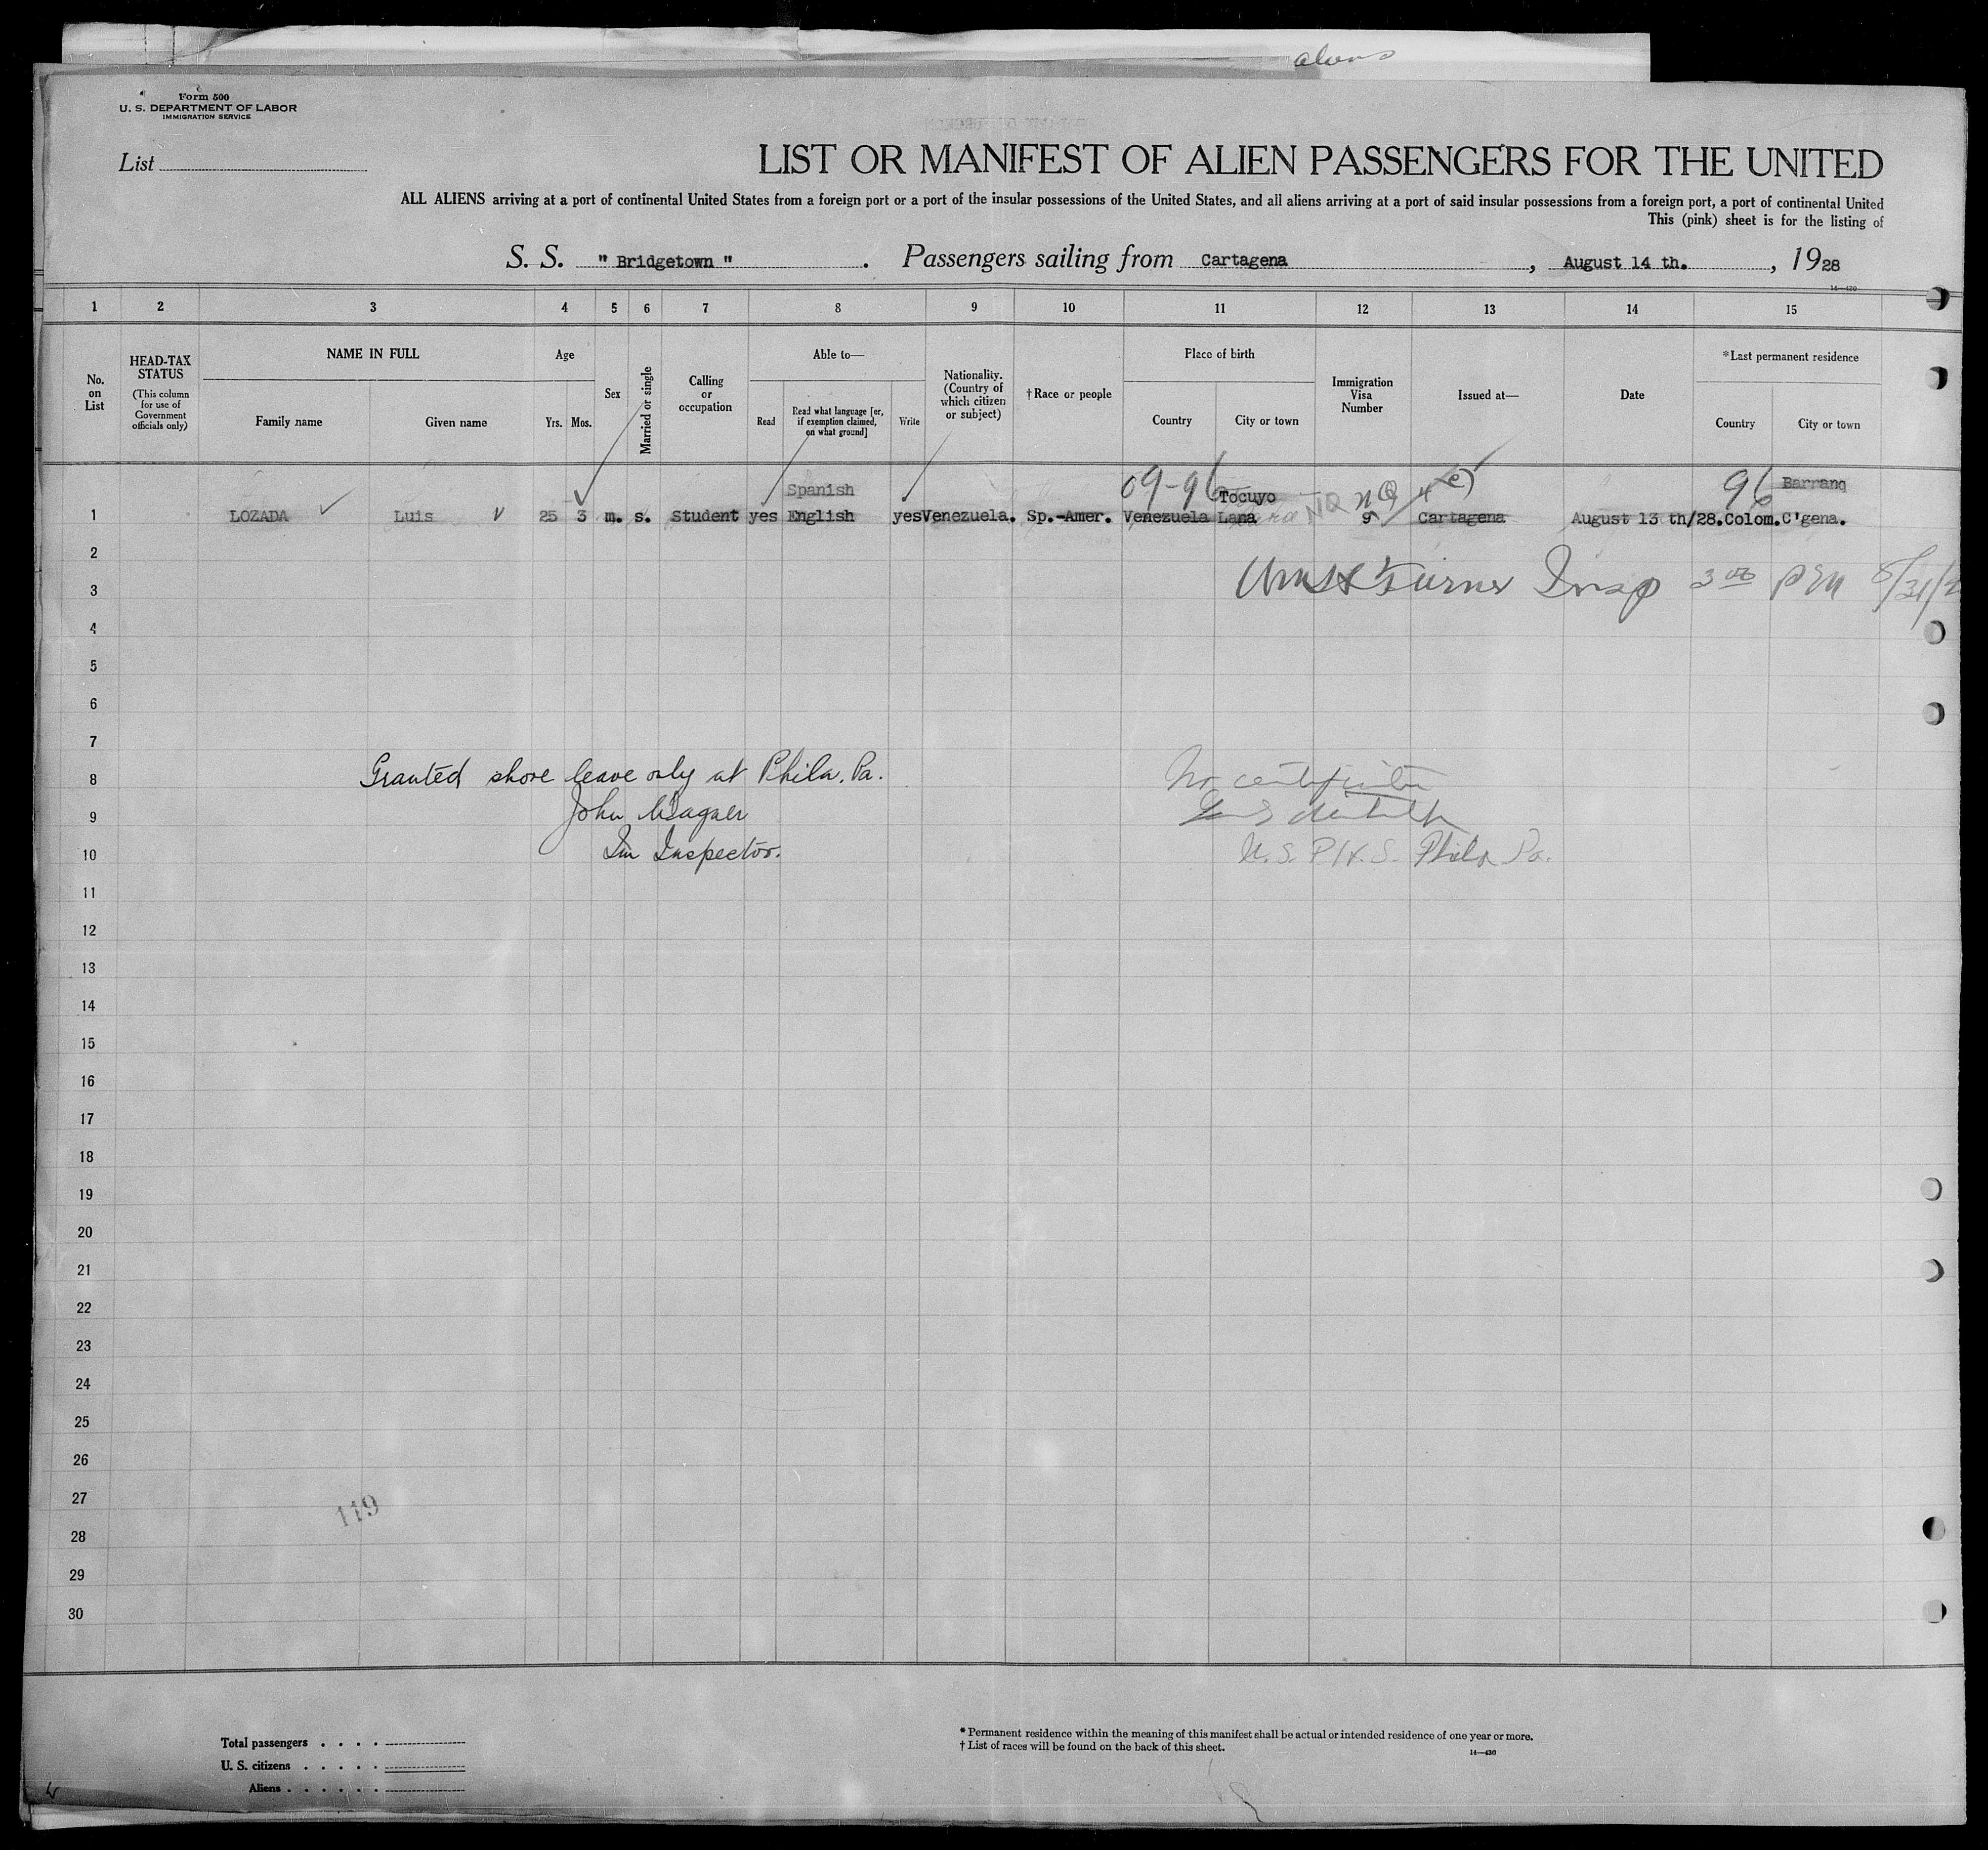 aliens
Form 500
U. S. DEPARTMENT OF LABOR
IMMIGRATION SERVICE
List
LIST OR MANIFEST OF ALIEN PASSENGERS FOR THE UNITED
ALL ALIENS arriving at a port of continental United States from a foreign port or a port of the insular possessions of the United States, and all aliens arriving at a port of said insular possessions from a foreign port, a port of continental United
This (pink) sheet is for the listing of
S. S. " Bridgetown " . Passengers sailing from Cartagena , August 14 th. , 1928
1 2 3 4 5 6 7 8 9 10 11 12 13 14 15
No. on List
HEAD-TAX STATUS
(This column for use of Government officials only)
NAME IN FULL
Family name
Given name
Age
Yrs. Mos.
Sex
Married or single
Calling or occupation
Able to—
Read
Read what language [or, if exemption claimed, on what ground]
Write
Nationality. (Country of which citizen or subject)
†Race or people
Place of birth
Country
City or town
Immigration Visa Number
Issued at—
Date
*Last permanent residence
Country
City or town
09-96 Tocuyo NQ 4 e) 96 Barranq
Spanish
1 LOZADA Luis 25 3 m. s. Student yes English yes Venezuela. Sp.-Amer. Venezuela Lana 9 Cartagena August 13 th/28. Colom. C'gena.
2
Wm H Turner Insp 3 00 PM 8/21/2
3
4
5
6
7
8 Granted shore leave only at Phila. Pa. No certificate
9 John Wagner
10 Im Inspector. U. S. P. H. S. Phila Pa.
11
12
13
14
15
16
17
18
19
20
21
22
23
24
25
26
27
119
28
29
30
Total passengers . . . .
U. S. citizens . . . . .
Aliens . . . . . .
* Permanent residence within the meaning of this manifest shall be actual or intended residence of one year or more.
† List of races will be found on the back of this sheet.
14—430